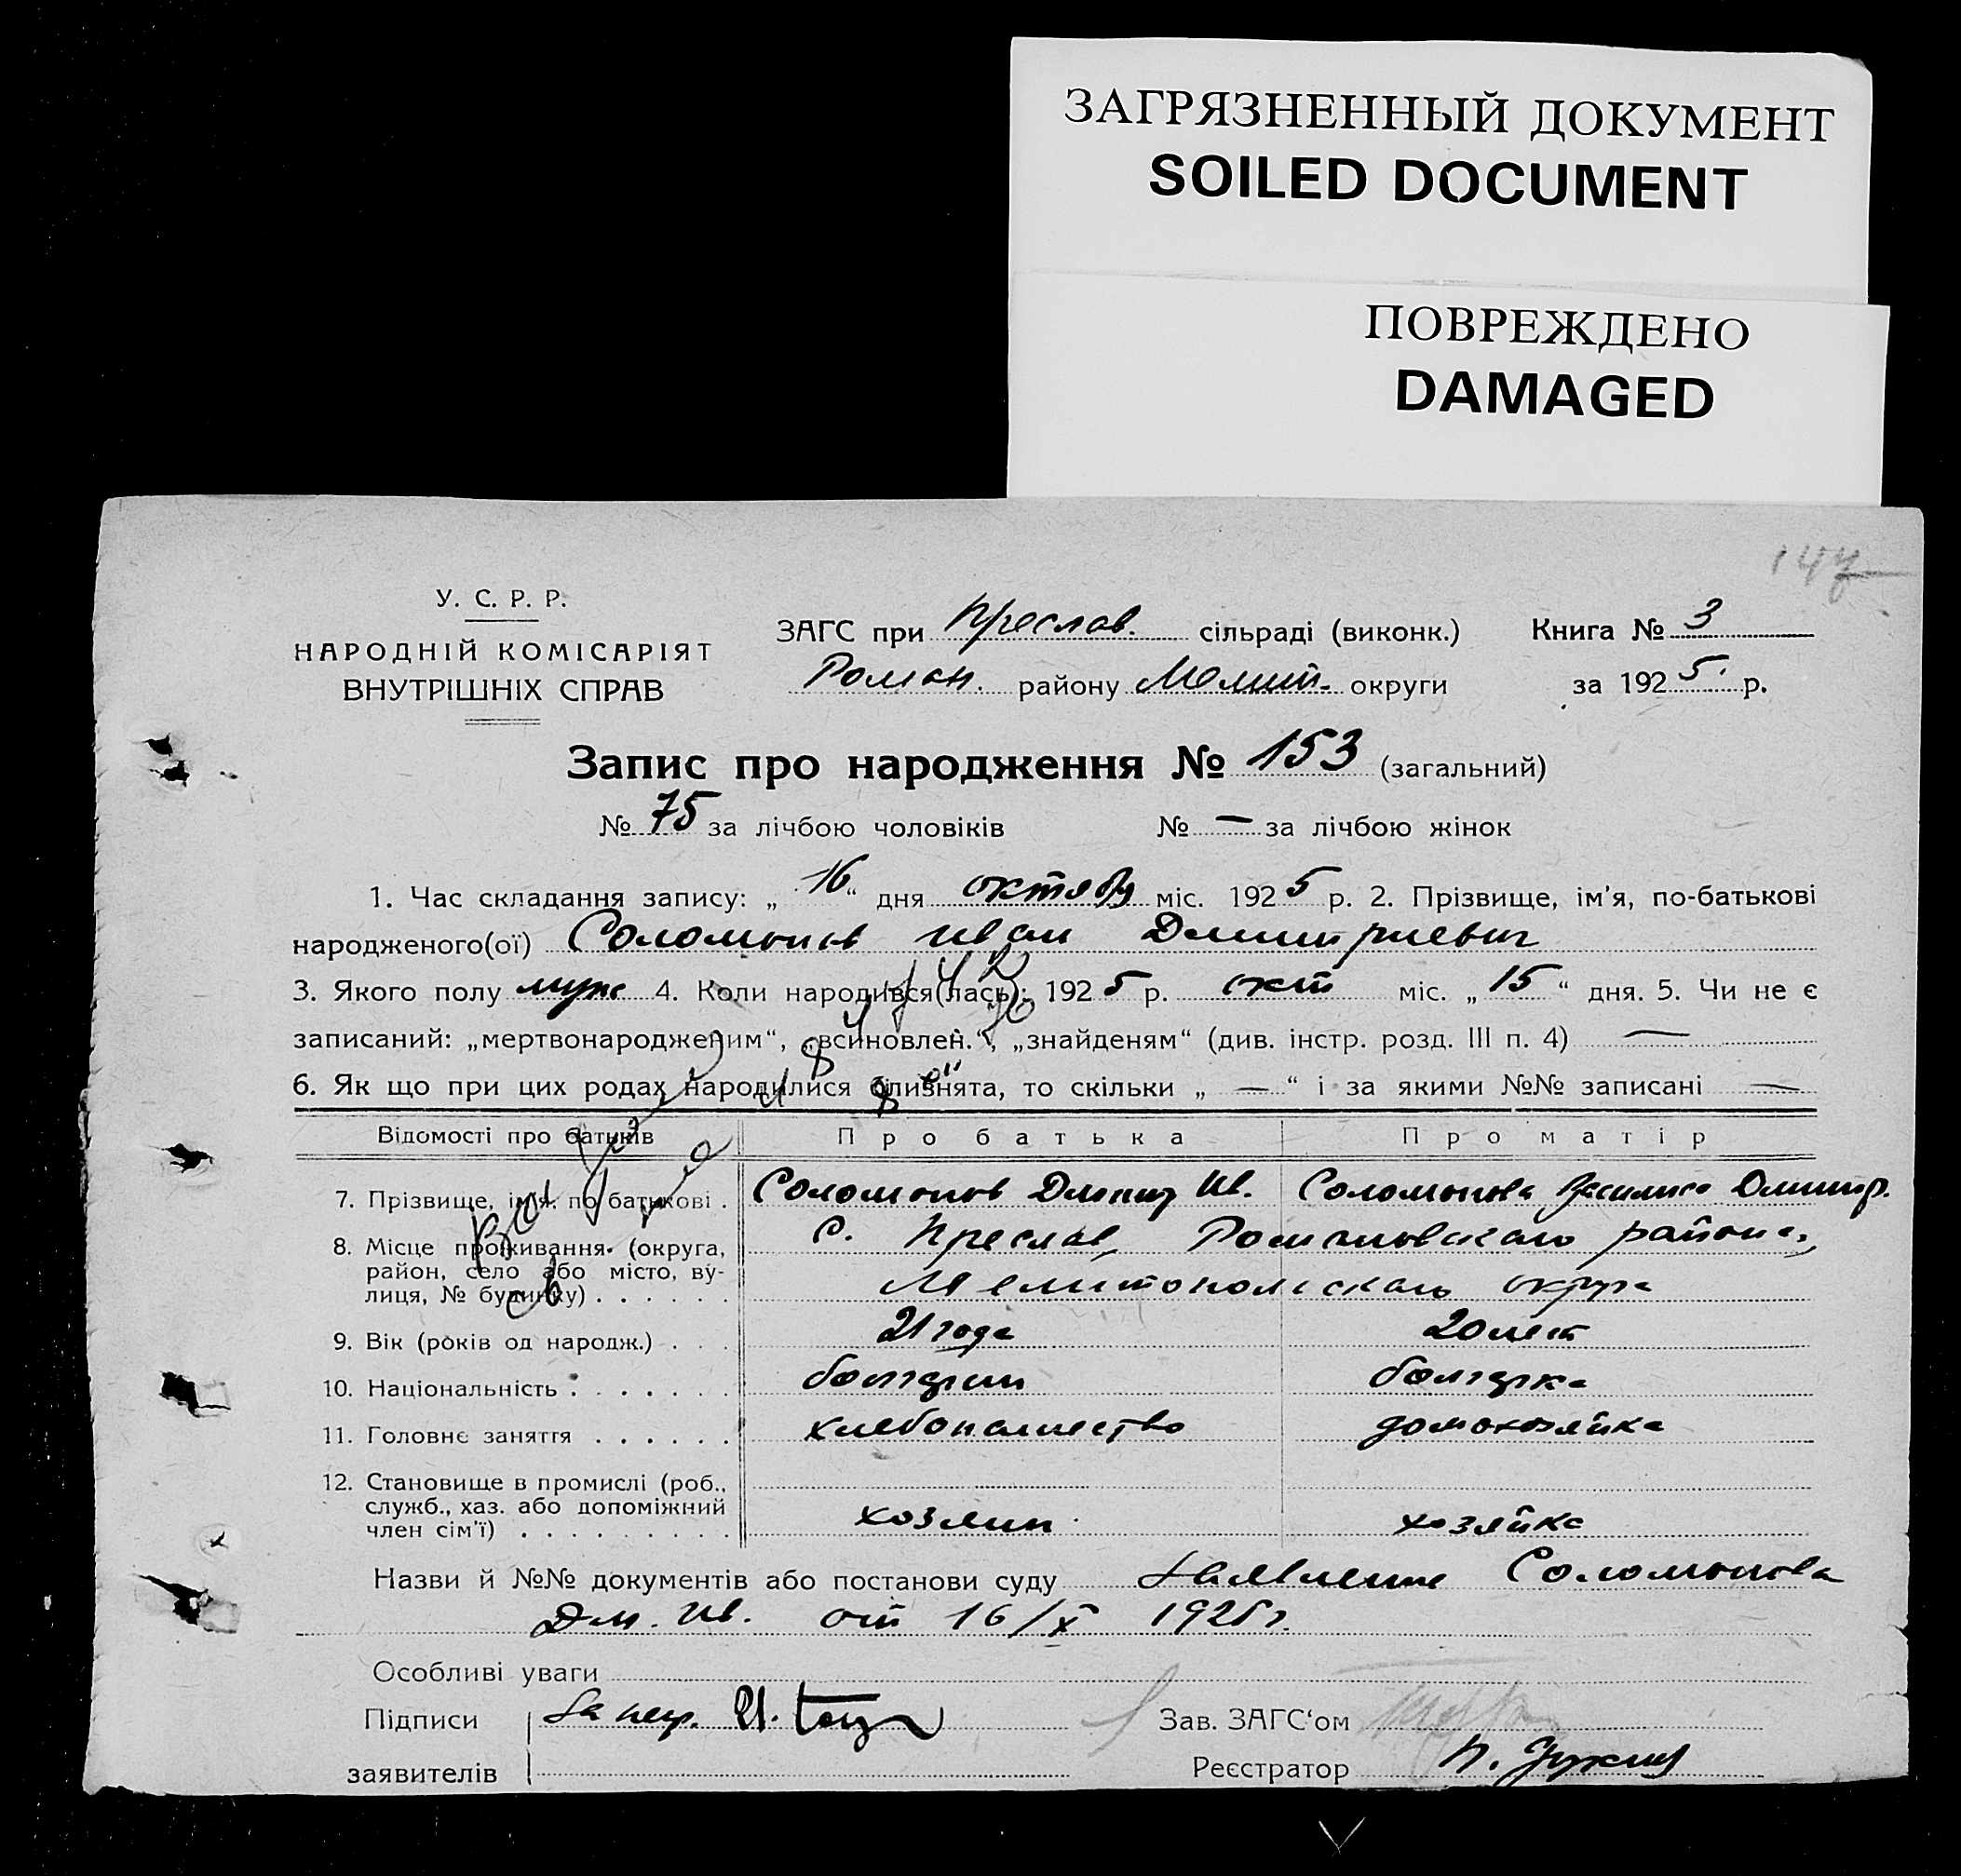 ЗАГРЯЗНЕННЫЙ ДОКУМЕНТ
SOILED DOCUMENT
ПОВРЕЖДЕНО
DAMAGED
У. С. Р. Р.
НАРОДНІЙ КОМІСАРІЯТ
ВНУТРІШНІХ СПРАВ
ЗАГС при Преслав. сільраді (виконк.) Книга № 3
Роман. району Мелит. округи за 1925 р.
Запис про народження № 153 (загальний)
№ 75 за лічбою чоловіків № — за лічбою жінок
1. Час складання запису: „16“ дня октября міс. 1925 р. 2. Прізвище, ім'я, по-батькові
народженого(ої) Соломонов Иван Дмитриевич
3. Якого полу муж 4. Коли народився(лась): 1925 р. окт міс. „15“ дня. 5. Чи не є
записаний: „мертвонародженим“, „всиновлен.“, „знайденям“ (див. інстр. розд. III п. 4) —
6. Як що при цих родах народилися близнята, то скільки „—“ і за якими №№ записані —
Відомості про батьків Про батька Про матір
7. Прізвище, ім'я, по батькові . Соломонов Дмитр Ив. Соломонова Василиса Дмитр.
8. Місце проживання (округа, с. Преслав, Романовского района,
район, село або місто, ву-
лиця, № будинку) . . . . . . Мелитопольскаго округа
9. Вік (років од народж.) . . . 21 года 20 лет
10. Національність . . . . . . . болгарин болгарка
11. Головне заняття . . . . . . хлебопашество домохозяйка
12. Становище в промислі (роб.,
служб., хаз. або допоміжний
член сім'ї) . . . . . . . . . хозяин хозяйка
Назви й №№ документів або постанови суду Заявление Соломонова
Дм. Ив. от 16/X 1925 г.
Особливі уваги
Підписи За негр.
Зав. ЗАГС‘ом
заявителів
Реєстратор